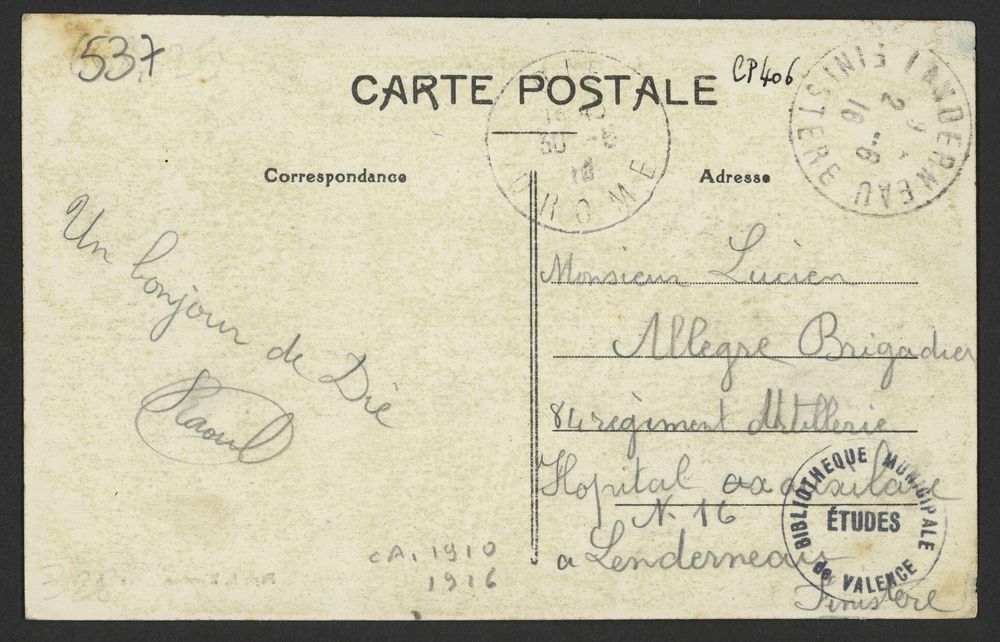 537
CP406
CARTE POSTALE
Correspondance
Adresse
DROME
LANDERNEAU FINISTERE
2 9
16 -6
Un bonjour de Die
Raoul
Monsieur Lucien
Allegre Brigadier
84 régiment Artillerie
Hopital auxilaire
N. 16
a Lenderneau
Finistere
BIBLIOTHEQUE MUNICIPALE
ÉTUDES
de VALENCE
CA. 1910
1916